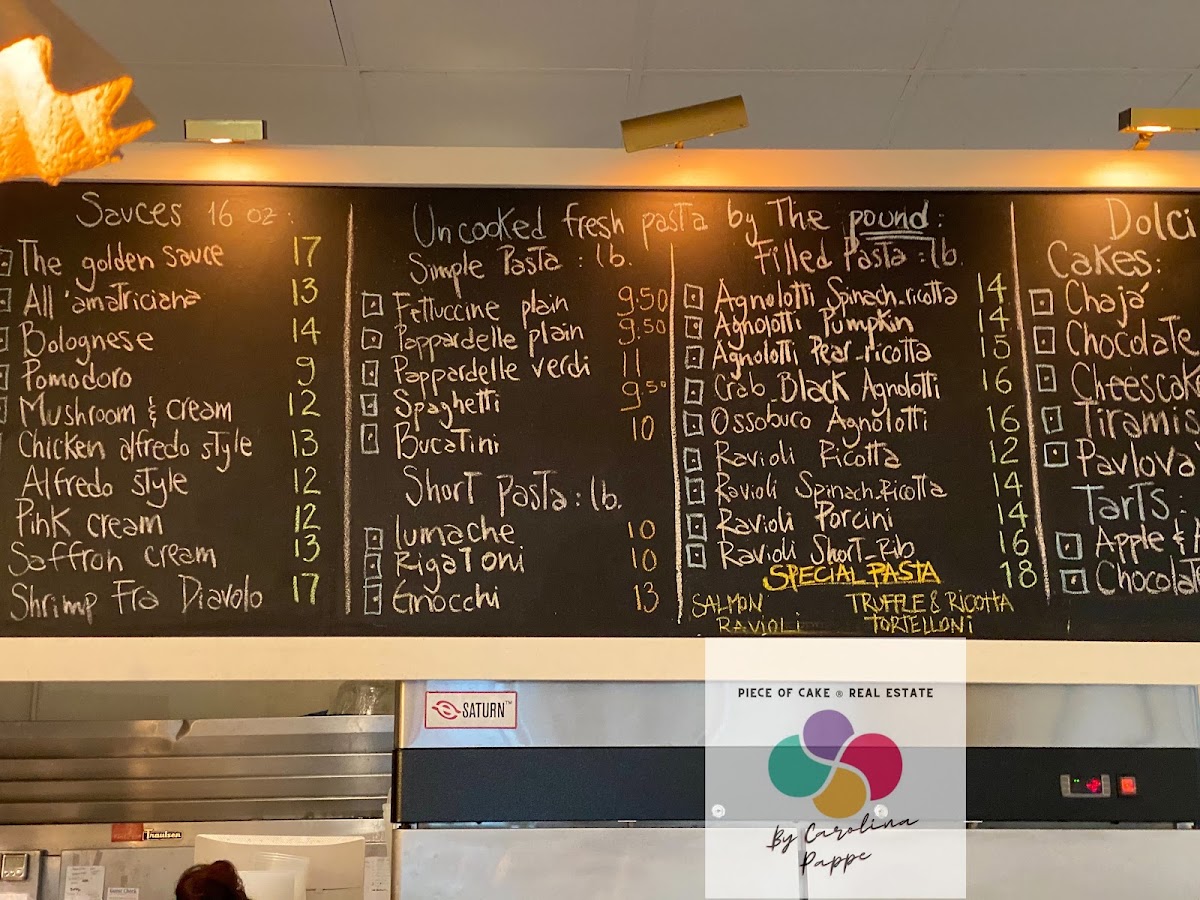 Sauces 16 oz:
The golden sauce 17
All'amatriciana 13
Bolognese 14
Pomodoro 9
Mushroom & cream 12
Chicken alfredo style 13
Alfredo style 12
Pink cream 12
Saffron cream 13
Shrimp Fra Diavolo 17
Uncooked fresh pasta by The pound:
Simple Pasta : lb.
Fettuccine plain 9.50
Pappardelle plain 9.50
Pappardelle verdi 11
Spaghetti 9.50
Bucatini 10
Short pasta : lb.
lumache 10
Rigatoni 10
Gnocchi 13
Filled Pasta : lb.
Agnolotti Spinach-ricotta 14
Agnolotti Pumpkin 14
Agnolotti Pear-ricotta 15
Crab-Black Agnolotti 16
Ossobuco Agnolotti 16
Ravioli Ricotta 12
Ravioli Spinach-Ricotta 14
Ravioli Porcini 14
Ravioli Short-Rib 16
SPECIAL PASTA 18
SALMON RAVIOLI
TRUFFLE & RICOTTA TORTELLONI
Dolci
Cakes:
Chajá
Chocolate
Cheescak
Tiramis
Pavlova
Tarts:
Apple &
Chocolat
SATURN™
Traulsen
PIECE OF CAKE ® REAL ESTATE
By Carolina
Pappe